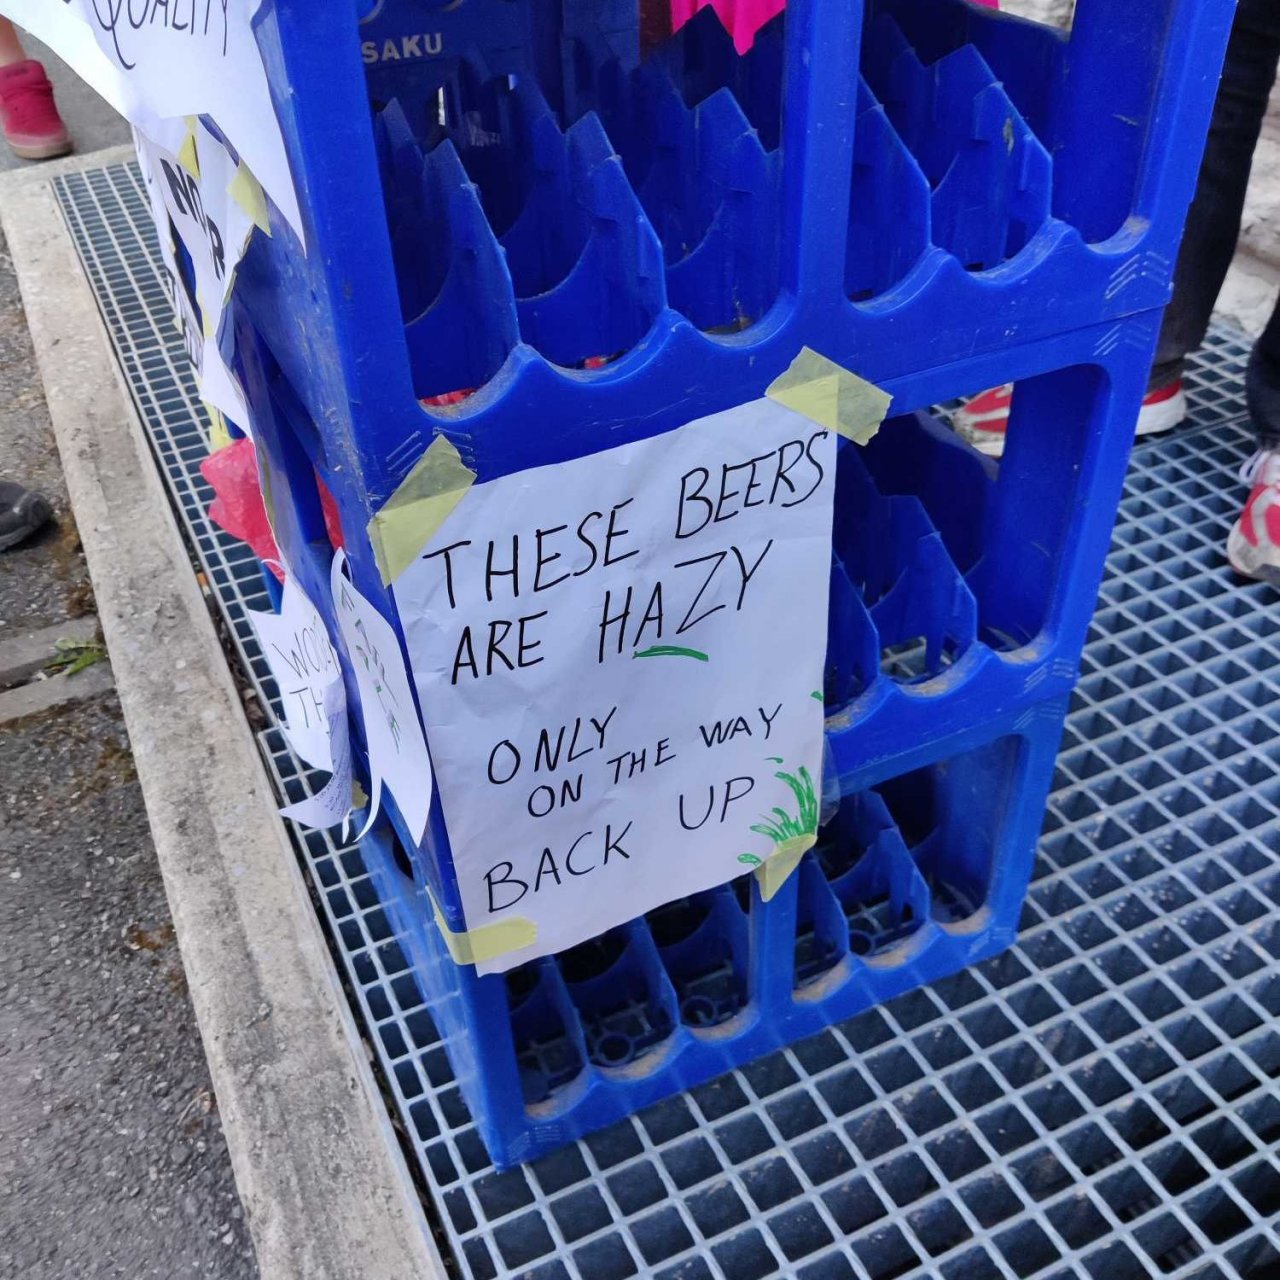 QUALITY
SAKU
THESE BEERS
ARE HAZY
ONLY
ON THE WAY
BACK UP